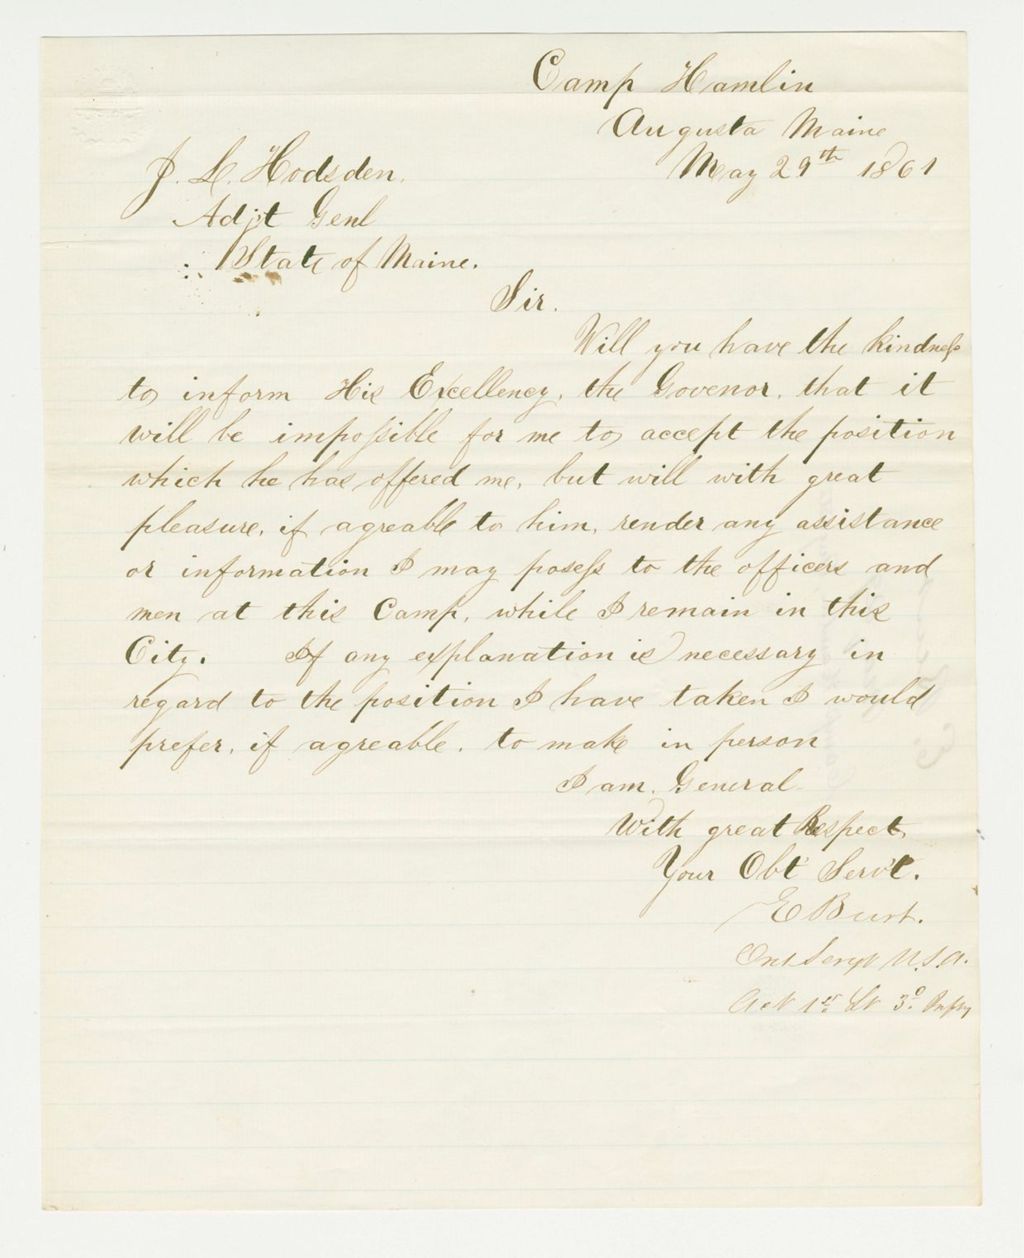 Camp Hamlin
Augusta Maine
May 29th 1861
J. L. Hodsden.
Adjt Genl
State of Maine.
Sir.
Will you have the kindness
to inform His Excellency, the Govenor, that it
will be impossible for me to accept the position
which he has offered me, but will with great
pleasure, if agreable to him, render any assistance
or information I may posess to the officers and
men at this Camp, while I remain in this
City. If any explanation is necessary in
regard to the position I have taken I would
prefer, if agreable, to make in person
I am, General
With great Respect,
Your Obt Servt.
E Burt.
Ord Sergt U.S.A.
Act 1st Lt 3d. Infty